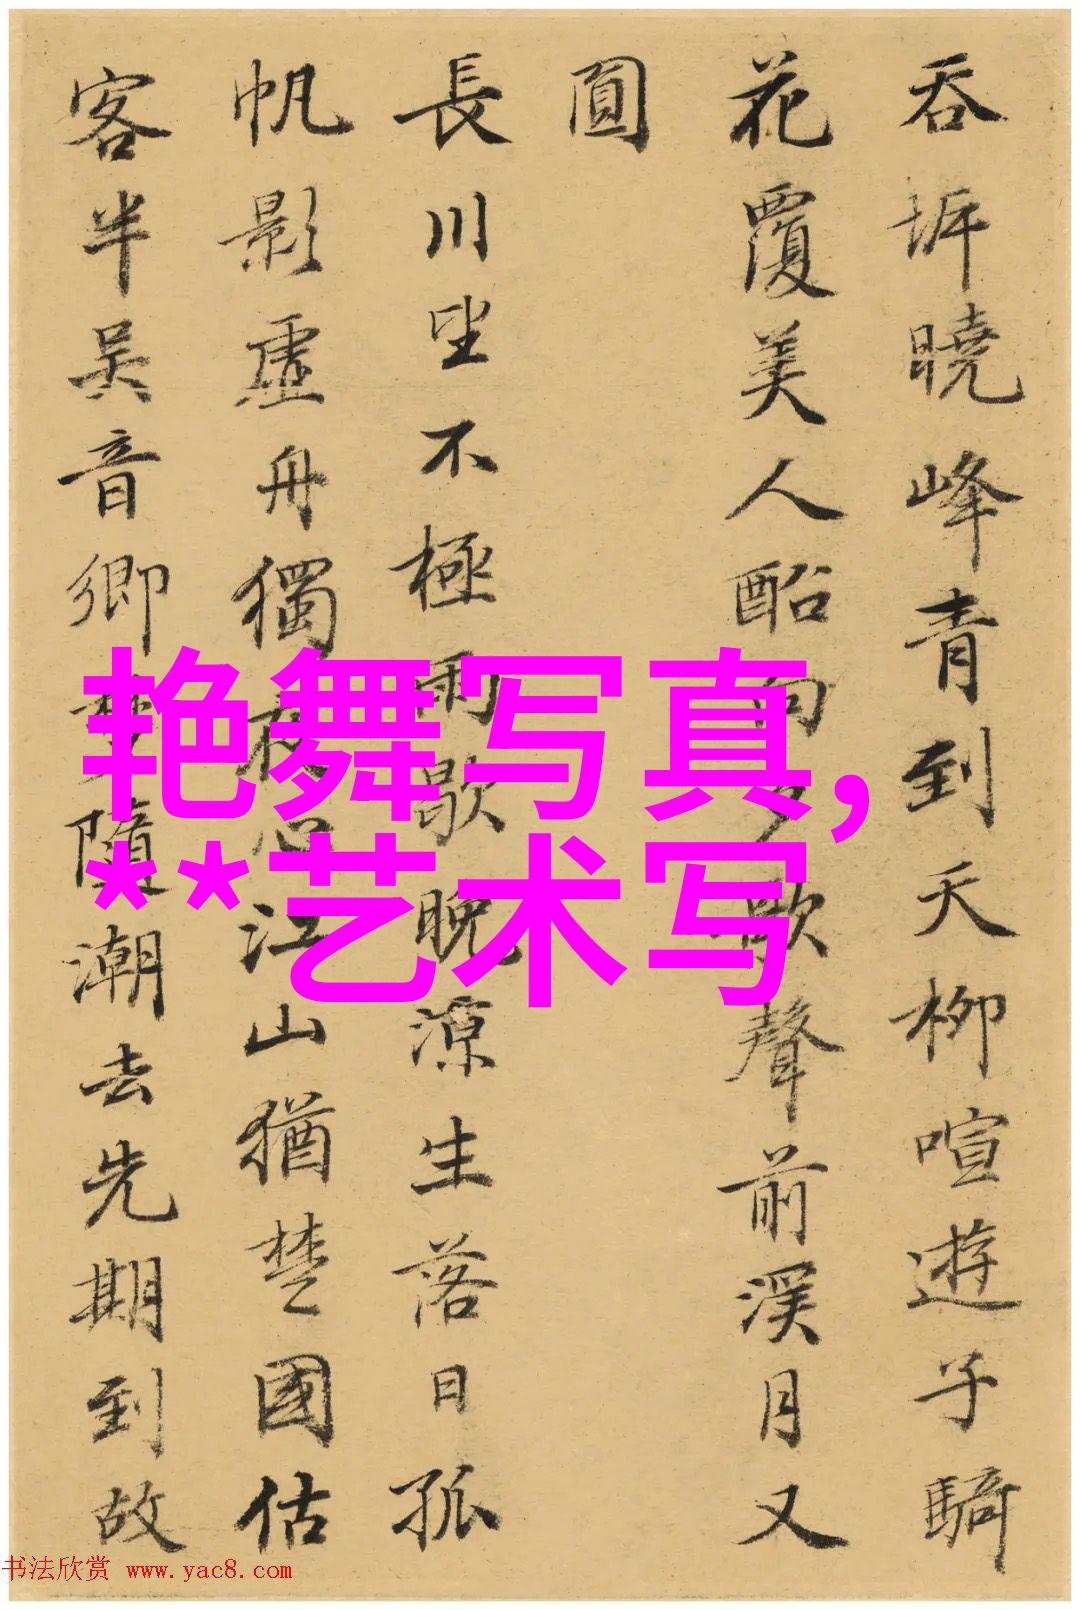 吞坼曉峰青到天柳喧遊子騎
花覆美人船向夕歌聲前溪月又
圓
長川望不極雨歇晚涼生落日孤
帆影虛舟獨夜心江山猶楚國估
客半吳音鄉夢隨潮去先期到故
艳舞写真,
**艺术写
书法欣赏 www.yac8.com